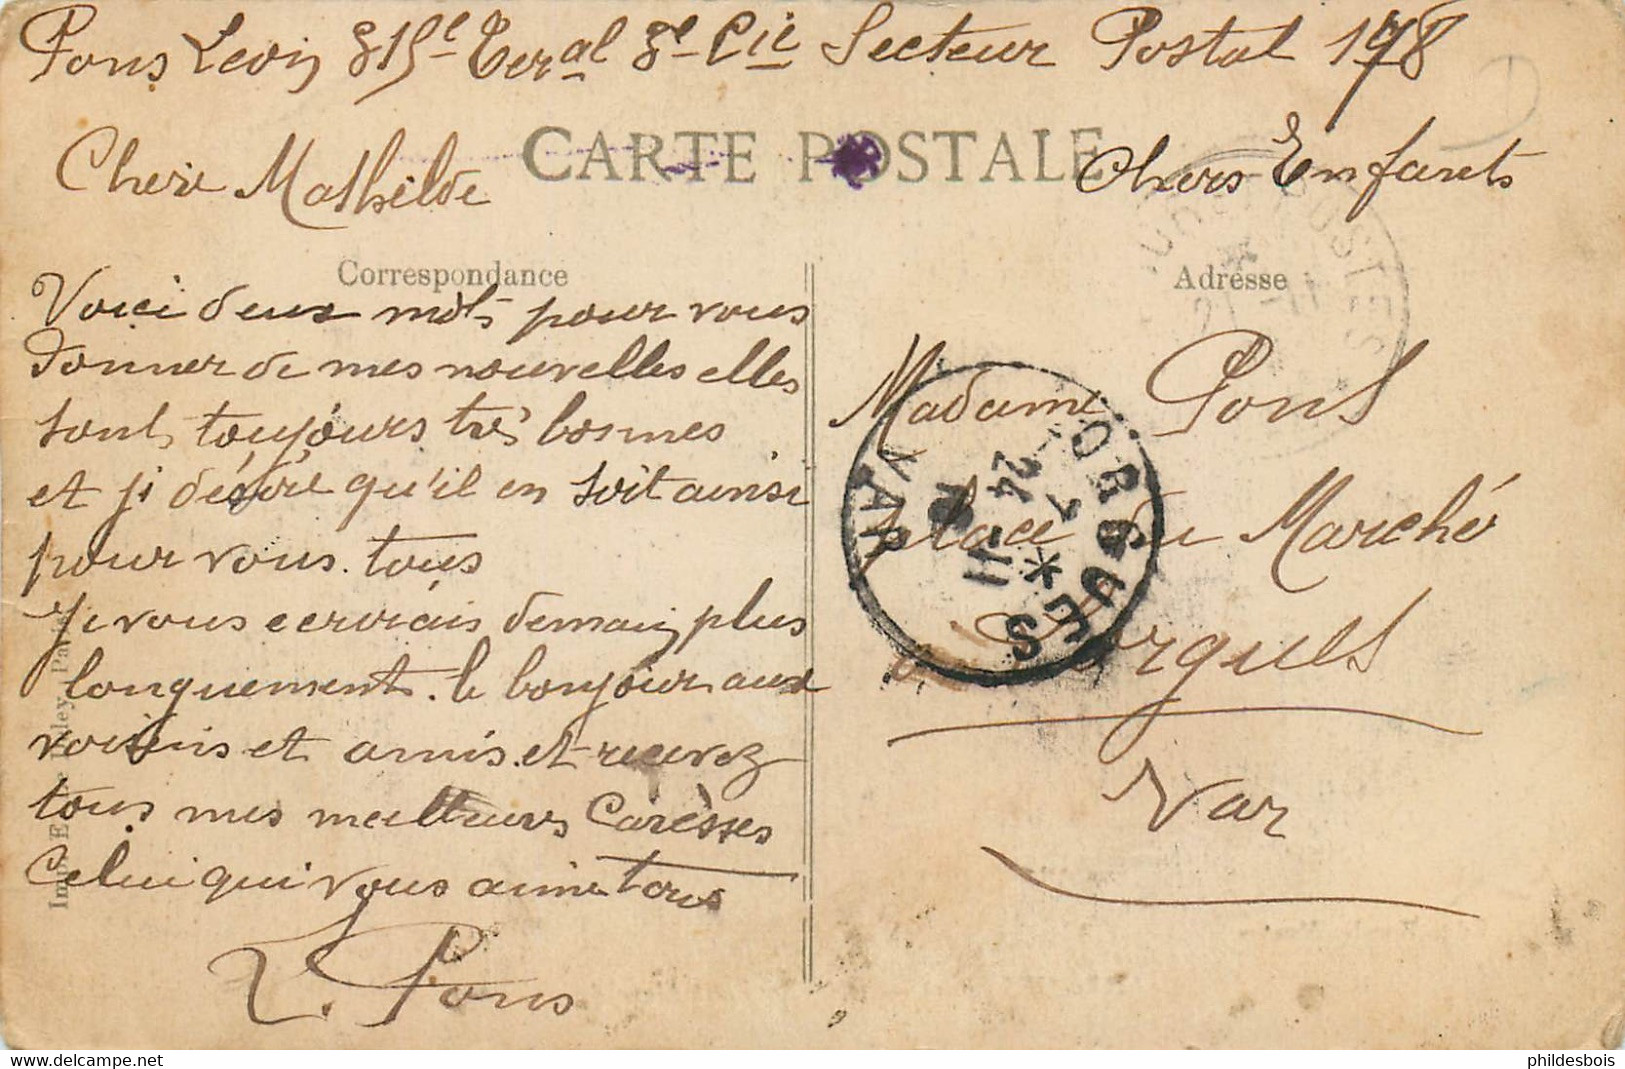 Pons Leon 315e Teral 8e Cie Secteur Postal 178
CARTE POSTALE
Cherie Mathilde
Chers Enfants
Correspondance
Adresse
Voici deux mots pour vous
donner de mes nouvelles elles
sont toujours très bonnes
et je désire qu'il en soit ainsi
pour vous tous
Je vous ecervrais demain plus
longuement. le bonjour aux
voisins et amis et recevez
tous mes meilleurs Carèsses
Celui qui vous aime tous
L. Pons
Madame Pons
place du Marché
a Lorgues
Var
LORGUES
VAR
24
7 -11
POSTES
delcampe.net
phildesbois